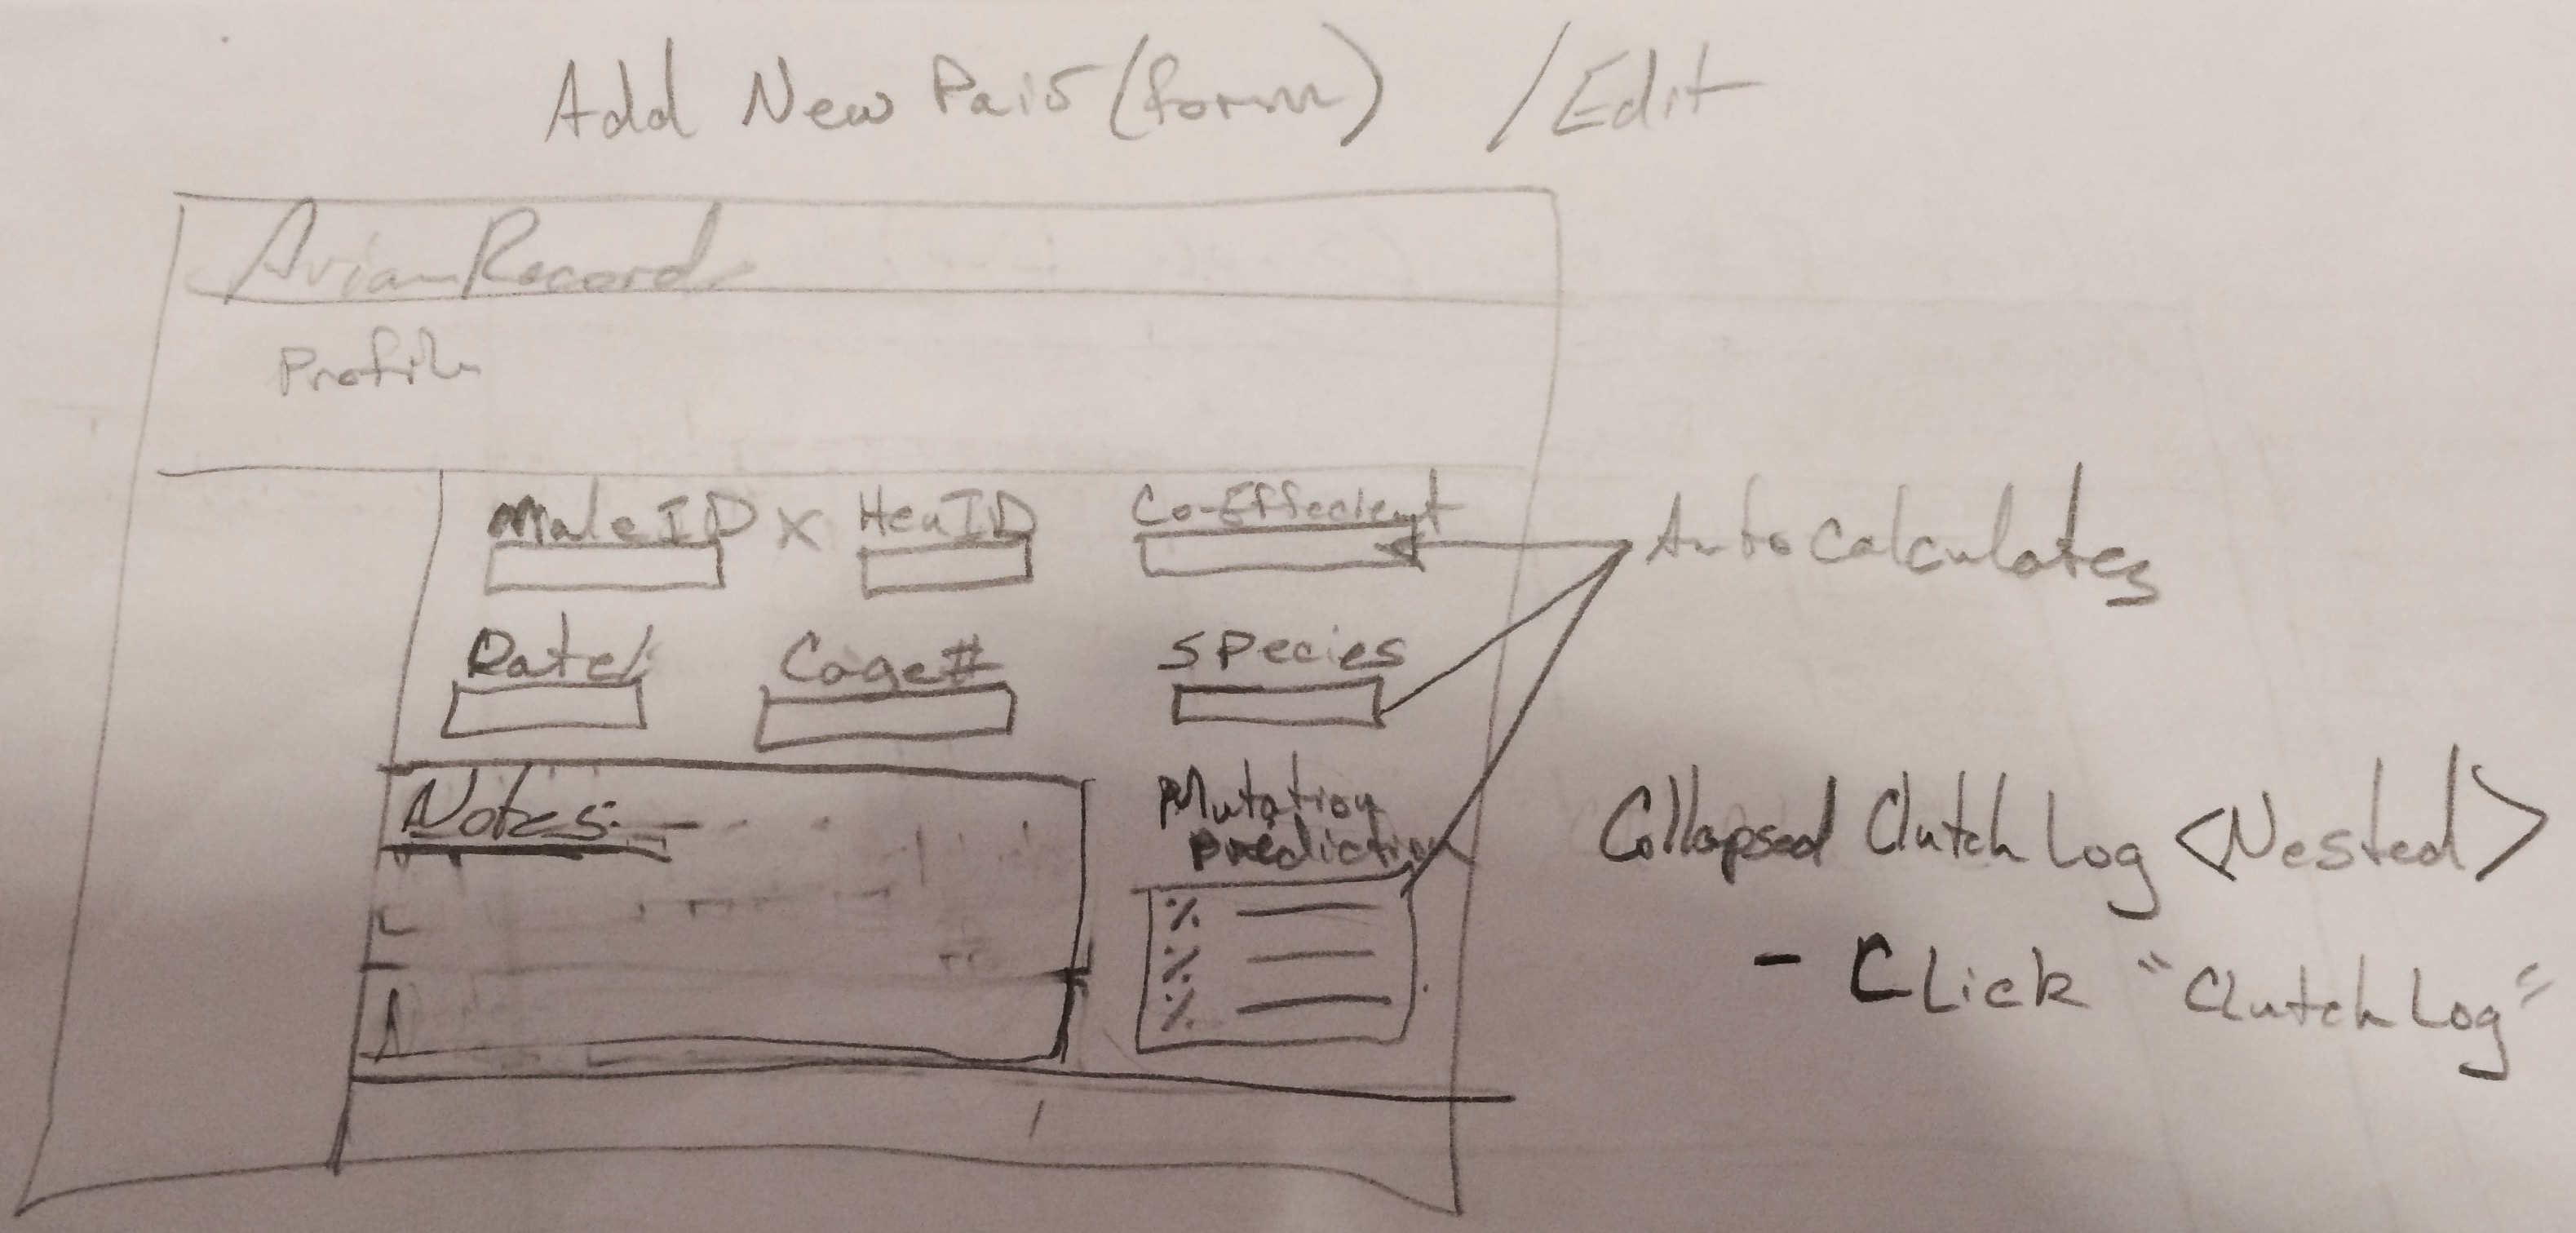 Add New Pair (form) /Edit
AvianRecord
Profile
Male ID X Hen ID Co-Effecient
Autocalculates
Date Cage# Species
Notes:
Mutation
Prediction
%
%
%
Collapsed Clutch Log <Nested>
- Click "Clutch Log"